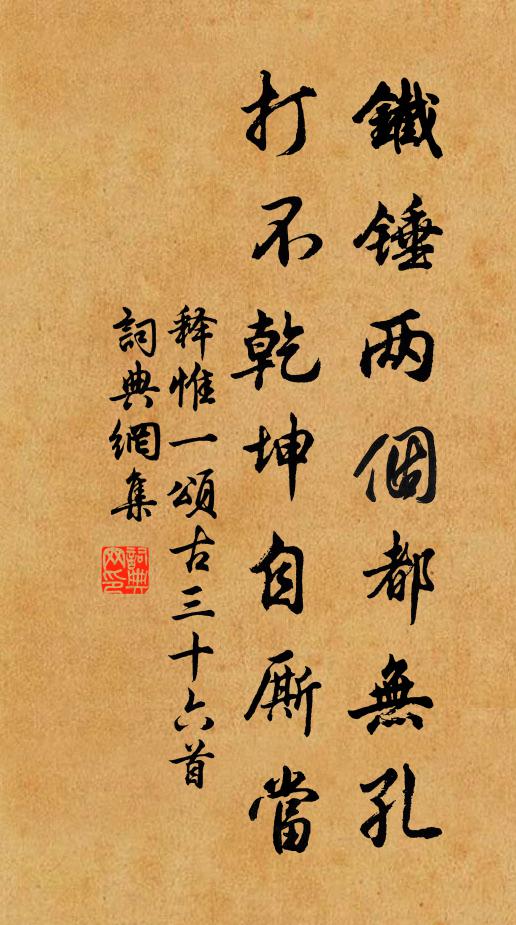 鐵錘两個都無孔
打不乾坤自厮當
释惟一頌古三十六首
詞典網集
詞典
网印